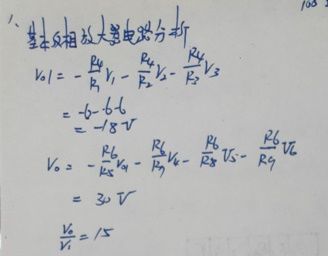 1、
基本反相放大器电路分析
Vo1 = -R4/R1 V1 - R4/R2 V2 - R4/R3 V3
= -6-6-6
= -18V
Vo = -R6/R5 Vo1 - R6/R7 V4 - R6/R8 V5 - R6/R9 V6
= 30V
Vo/Vi = 15